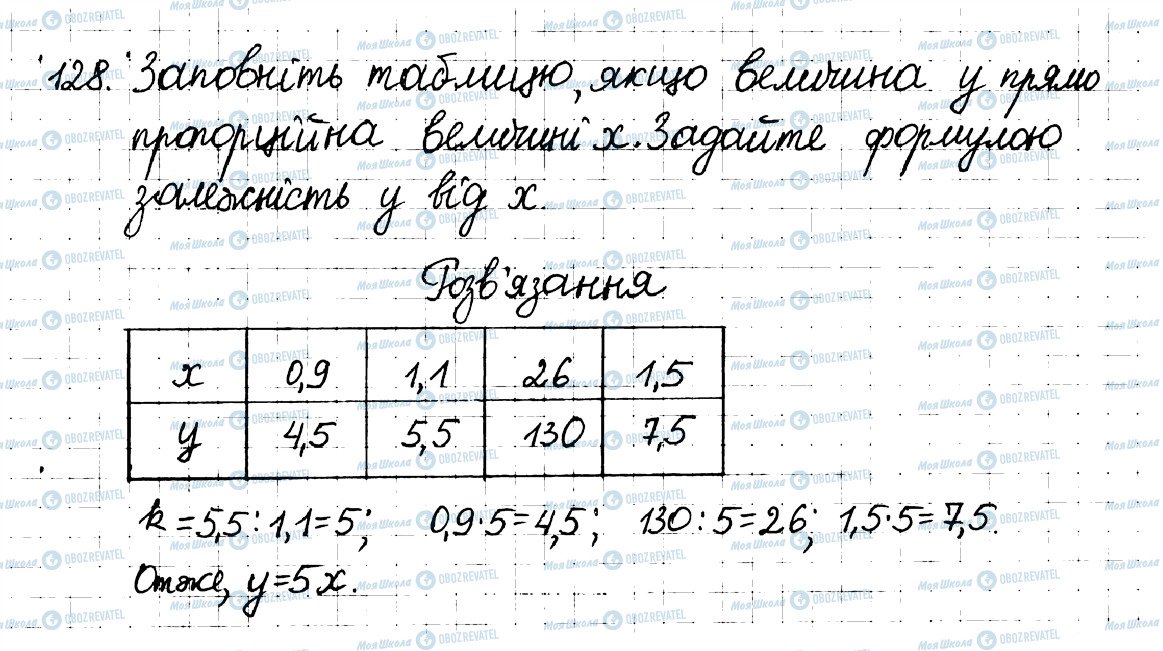 128. Заповніть таблицю, якщо величина y прямо
пропорційна величині x. Задайте формулою
залежність y від x.
Розв'язання
x 0,9 1,1 26 1,5
y 4,5 5,5 130 7,5
k = 5,5 : 1,1 = 5; 0,9 · 5 = 4,5; 130 : 5 = 26; 1,5 · 5 = 7,5.
Отже, y = 5x.